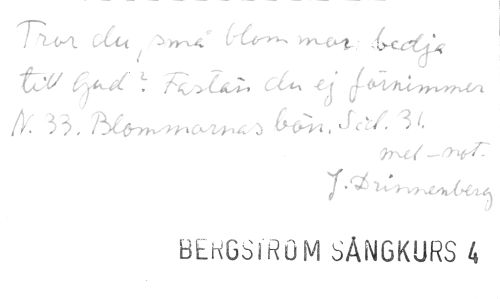 Tror du, små blommor bedja
till Gud? Fastän du ej förnimmer
N. 33. Blommornas bön. Sid. 31.
mel-not.
J. Drinnenberg
BERGSTRÖM SÅNGKURS 4